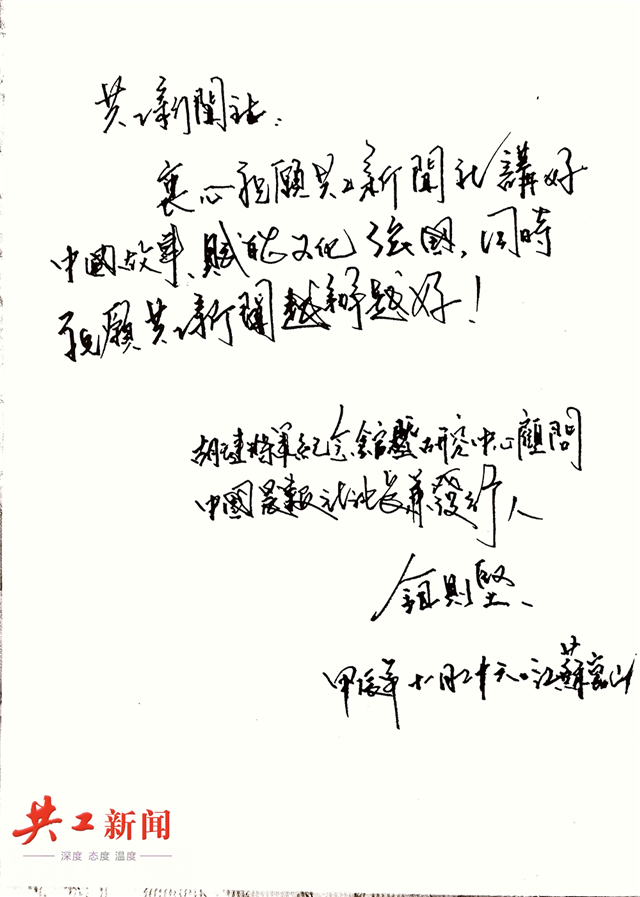 共工新聞社：
衷心祝願共工新聞社講好
中國故事、賦能文化強國，同時
祝願共工新聞越辦越好！
胡璉將軍紀念館暨研究中心顧問
中國晨報社社長兼發行人
則堅
甲辰年十一月二十 江蘇崑山
共工新闻
深度 态度 温度